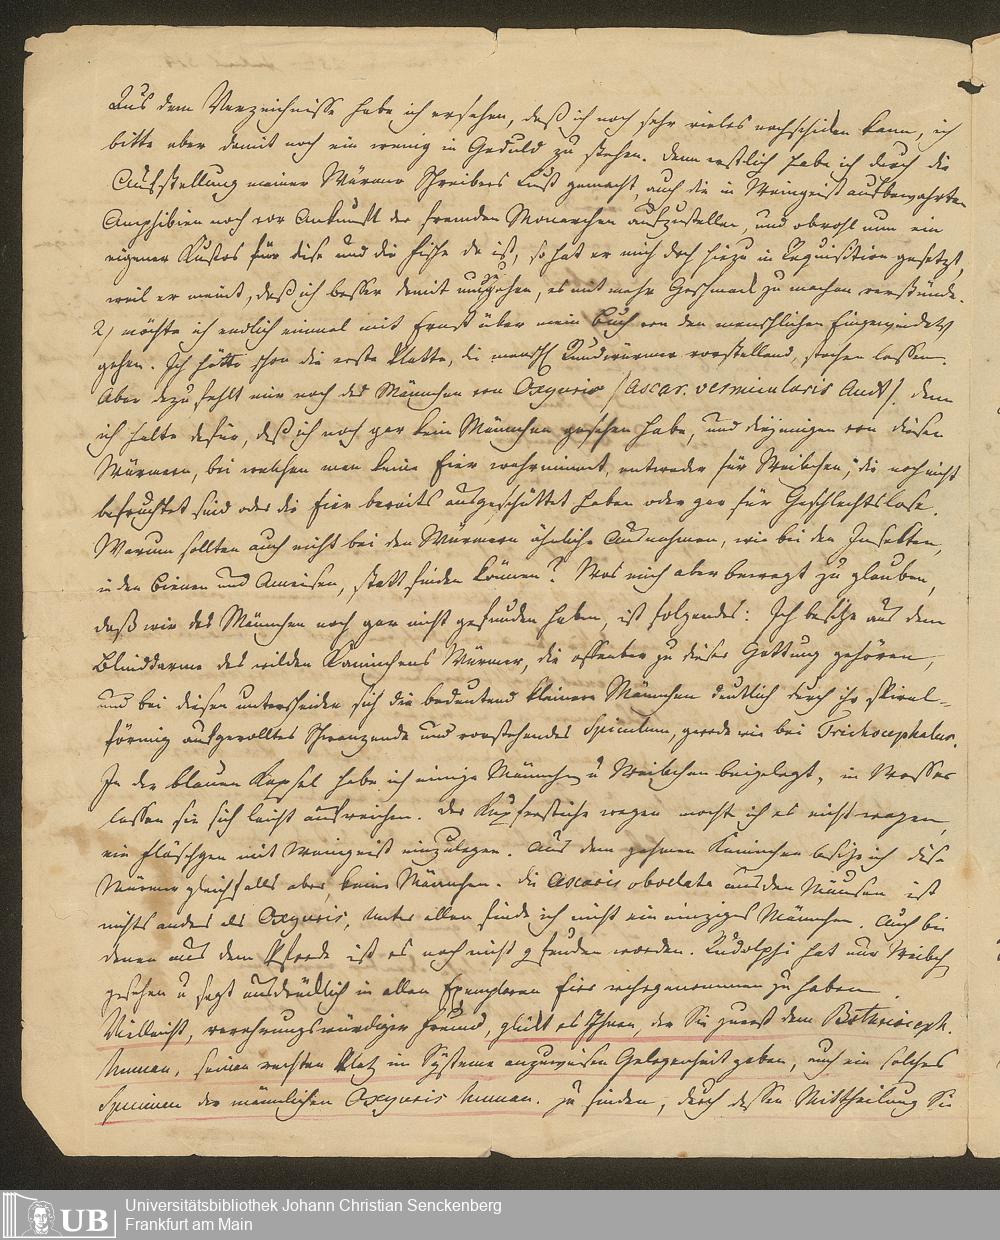 Aus dem Verzeichnisse habe ich ersehen, daß ich noch sehr vieles nachschicken kann, ich
bitte aber damit noch ein wenig in Geduld zu stehen. Denn erstlich habe ich durch die
Aufstellung meiner Würmer Schreibers Lust gemacht, auch die in Weingeist aufbewahrten
Amphibien noch vor Ankunft der fremden Monarchen aufzustellen, und obwohl nun ein
eigener Kustos für diese und die Fische da ist, so hat er mich doch hiezu in Requisition gesetzt,
weil er meint, daß ich besser damit umzugehen, es mit mehr Geschmack zu machen verstünde.
2) möchte ich endlich einmal mit Ernst über mein Buch von den menschlichen Eingeweidew
gehen. Ich hätte schon die erste Platte, die menschl Rundwürmer vorstellend, stechen lassen.
Aber dazu fehlt mir noch das Männchen von Oxyuris (Ascar. vermicularis Auct). Denn
ich halte dafür, daß ich noch gar kein Männchen gesehen habe, und diejenigen von diesen
Würmern, bei welchen man keine Eier wahrnimmt, entweder für Weibchen, die noch nicht
befruchtet sind oder die Eier bereits ausgeschüttet haben oder gar für Geschlechtslose.
Warum sollten auch nicht bei den Würmern ähnliche Ausnahmen, wie bei den Insekten,
in den Bienen und Ameisen, statt finden können? Was mich aber bewegt zu glauben,
daß wir das Männchen noch gar nicht gefunden haben, ist folgendes: Ich besitze aus dem
Blinddarme des wilden Kaninchens Würmer, die offenbar zu dieser Gattung gehören,
und bei diesen unterscheiden sich die bedeutend kleinern Männchen deutlich durch ihr spiral-
förmig aufgerolltes Schwanzende und vorstehendes Spiculum, gerade wie bei Trichocephalus.
In der blauen Kapsel habe ich einige Männchen u Weibchen beigelegt, in Wasser
lassen sie sich leicht aufweichen. Der Kupferstiche wegen mocht ich es nicht wagen,
ein Fläschgen mit Weingeist einzulegen. Aus dem zahmen Kaninchen besitze ich diese
Würmer gleichfalls aber keine Männchen. Die Ascaris obvelata aus den Mäusen ist
nichts anders als Oxyuris, unter allen finde ich nicht ein einziges Männchen. Auch bei
denen aus dem Pferde ist es noch nicht gefunden worden. Rudolphi hat nur Weibch
gesehen u sagt ausdrücklich in allen Exemplaren Eier wahrgenommen zu haben.
Vielleicht, verehrungswürdiger Freund, glückt es Ihnen, der Sie zuerst dem Bothrioceph.
human, seinen rechten Platz im Systeme anzuweisen Gelegenheit gaben, auch ein solches
Specimen der männlichen Oxyuris human. zu finden, durch dessen Mittheilung Sie
UB
Universitätsbibliothek Johann Christian Senckenberg
Frankfurt am Main